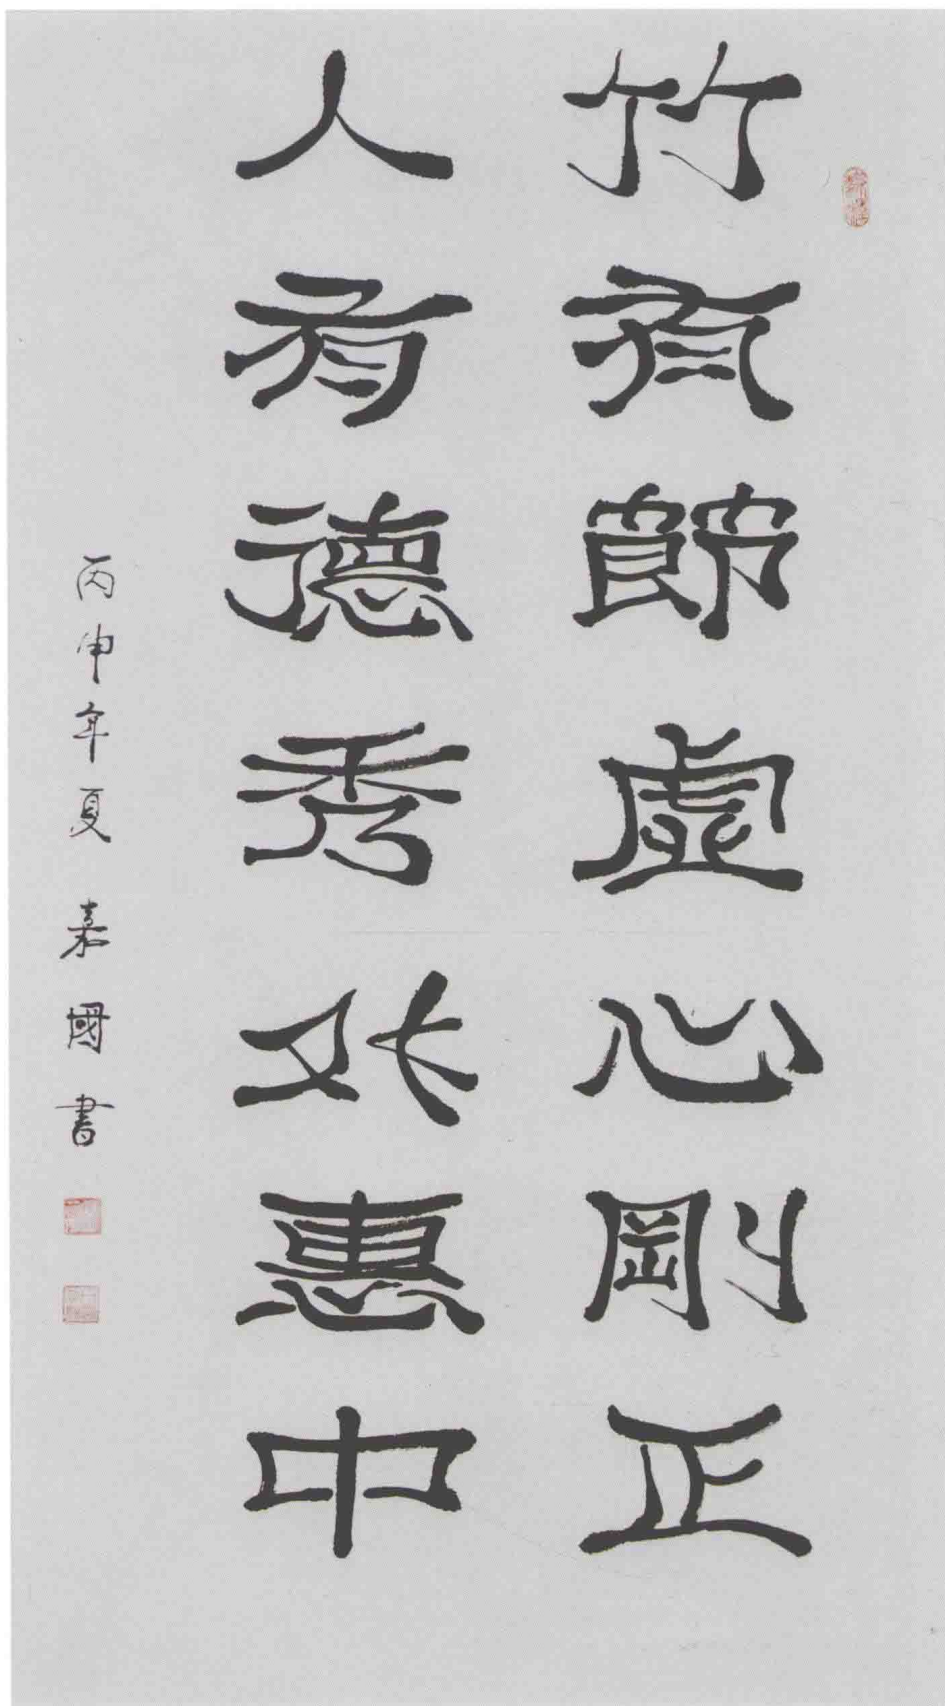 竹有節虚心剛正
人有德秀外惠中
丙申年夏 嘉國書